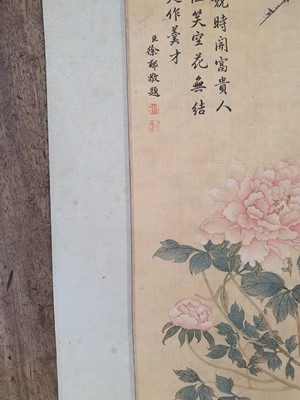 時開富貴人
笑空花無結
作羹才
臣徐郙敬題